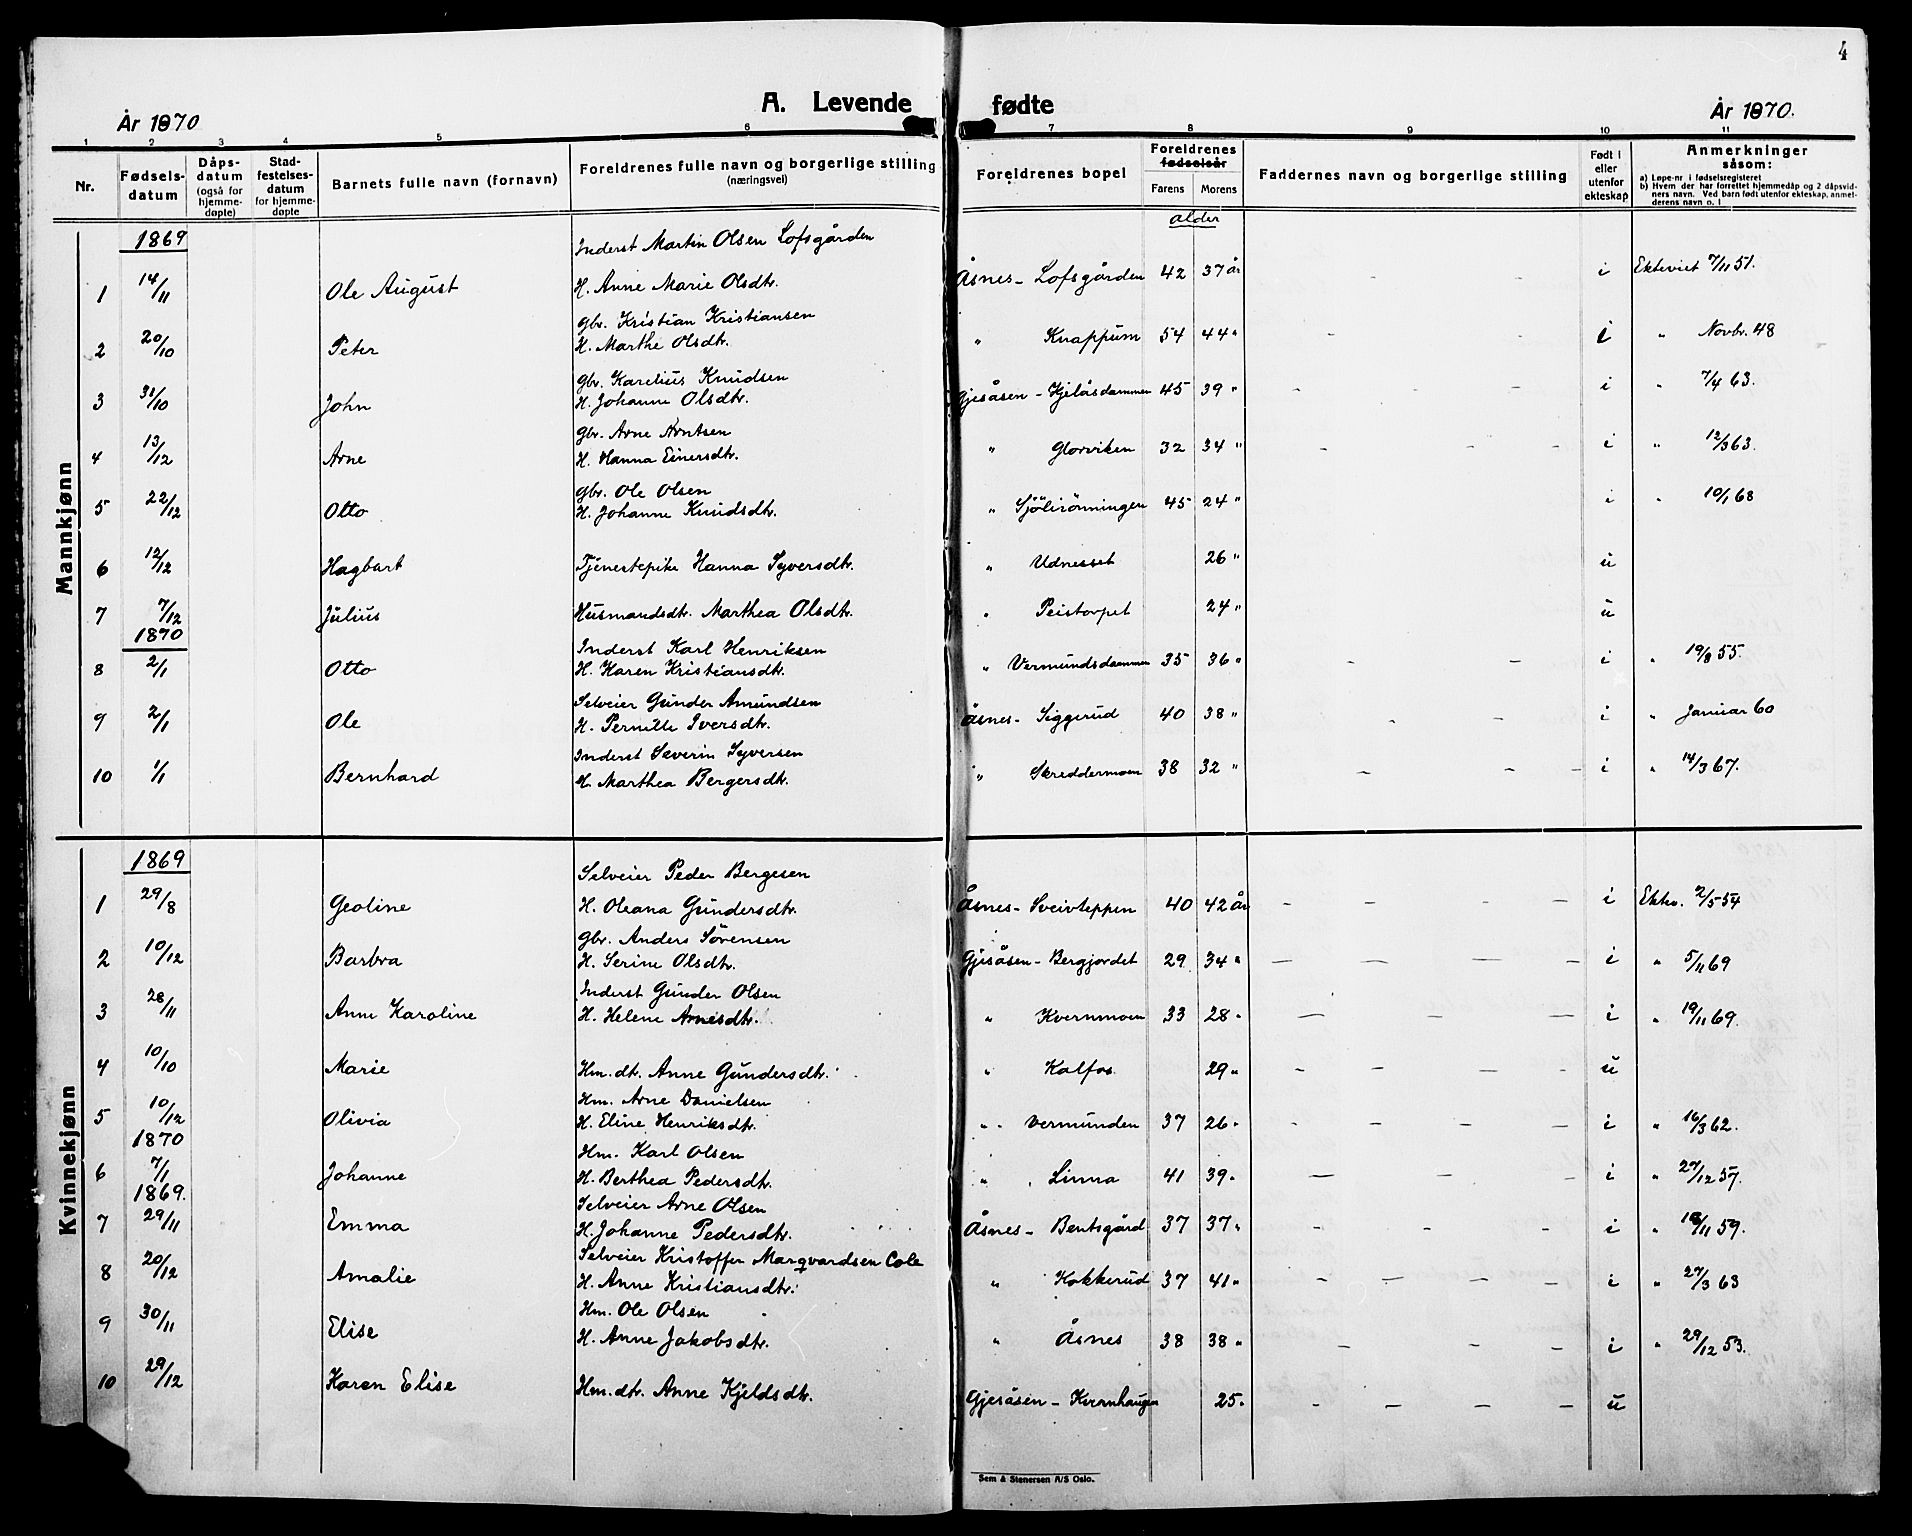 4
A. Levende fødte
År 1870 År 1870.
1 2 3 4 5 6 7 8 9 10 11
Nr. Fødselsdatum Dåpsdatum (også for hjemmedøpte) Stadfestelsesdatum for hjemmedøpte Barnets fulle navn (fornavn) Foreldrenes fulle navn og borgerlige stilling (næringsvei) Foreldrenes bopel Foreldrenes fødselsår Farens Morens Faddernes navn og borgerlige stilling Født i eller utenfor ekteskap Anmerkninger såsom:
a) Løpe-nr i fødselsregisteret
b) Hvem der har forrettet hjemmedåp og 2 dåpsvidners navn. Ved barn født utenfor ekteskap, anmelderens navn o. l
alder
Mannkjønn
1869 Inderst Martin Olsen Lofsgården
1 14/11 Ole August H. Anne Marie Olsdtr. Åsnes - Lofsgården 42 37 år - - - i Ekteviet 7/11 51.
Gbr. Kristian Kristiansen
2 20/10 Peter H. Marthe Olsdtr. " Knappum 54 44 " - - - i " Novb. 48
Gbr. Karelius Knudsen
3 31/10 John H. Johanne Olsdtr. Gjesåsen - Kjelåsdammen 45 39 " - - - i " 7/4 63.
Gbr. Arne Arntsen
4 13/12 Arne H. Hanna Einersdtr. " Glorviken 32 34 " - - - i " 12/3 63.
Gbr. Ole Olsen
5 22/12 Otto H. Johanne Knudsdtr. " Sjölirönningen 45 24 " i " 10/1 68
6 12/12 Hagbart Tjenestepike Hanna Syversdtr. " Udnesset 26 " u
7 7/12 Julius Husmandsdtr. Marthea Olsdtr. " Peistorpet 24 " u
1870 Inderst Karl Henriksen
8 2/1 Otto H. Karen Kristiansdtr. " Vermundsdammen 35 36 " - - i " 19/8 55.
Selveier Gunder Amundsen
9 2/1 Ole H. Pernille Iversdtr. Åsnes - Siggerud 40 38 " - - - i " Januar 60
Inderst Severin Syversen
10 1/1 Bernhard H. Marthea Bergersdtr. " Skreddermoen 38 32 " - - - i " 14/3 67.
Kvinnekjønn
1869 Selveier Peder Bergesen
1 29/8 Geoline H. Oleana Gundersdtr. Åsnes - Sveivteppen 40 42 år - - - - i Ektev. 2/5 54
Gbr. Anders Sörensen
2 10/12 Barbra H. Serine Olsdtr. Gjesåsen - Bergjordet 29 34 " - - - - i " 5/11 69
Inderst Gunder Olsen
3 28/11 Anne Karoline H. Helene Arnesdtr. " Kvernmoen 33 28 " - - - - i " 19/11 69.
4 10/10 Marie Hm. dt. Anne Gundersdtr. " Kalfos 29 " - - - - u
Hm. Arne Danielsen
5 10/12 Olivia H. Eline Henriksdtr. " Vermunden 37 26 " - - - - i " 16/3 62.
1870 Hm. Karl Olsen
6 7/1 Johanne H. Berthea Pedersdtr. " Linna 41 39 " - - - - i " 27/12 57.
1869. Selveier Arne Olsen
7 29/11 Emma H. Johanne Pedersdtr. Åsnes - Bentsgård 37 37 " - - - - i " 18/11 59.
Selveier Kristoffer Marqvardsen Cole
8 20/12 Amalie H. Anne Kristiansdtr. " Kokkerud 37 41 " - - - - i " 27/3 63
Hm. Ole Olsen
9 30/11 Elise H. Anne Jakobsdtr. " Åsnes 38 38 " - - - i " 29/12 53.
10 29/12 Karen Elise Hm. dtr. Anne Kjeldsdtr. Gjesåsen - Kvernhaugen 25 " - - - - u
Sem & Stenersen A/S Oslo.